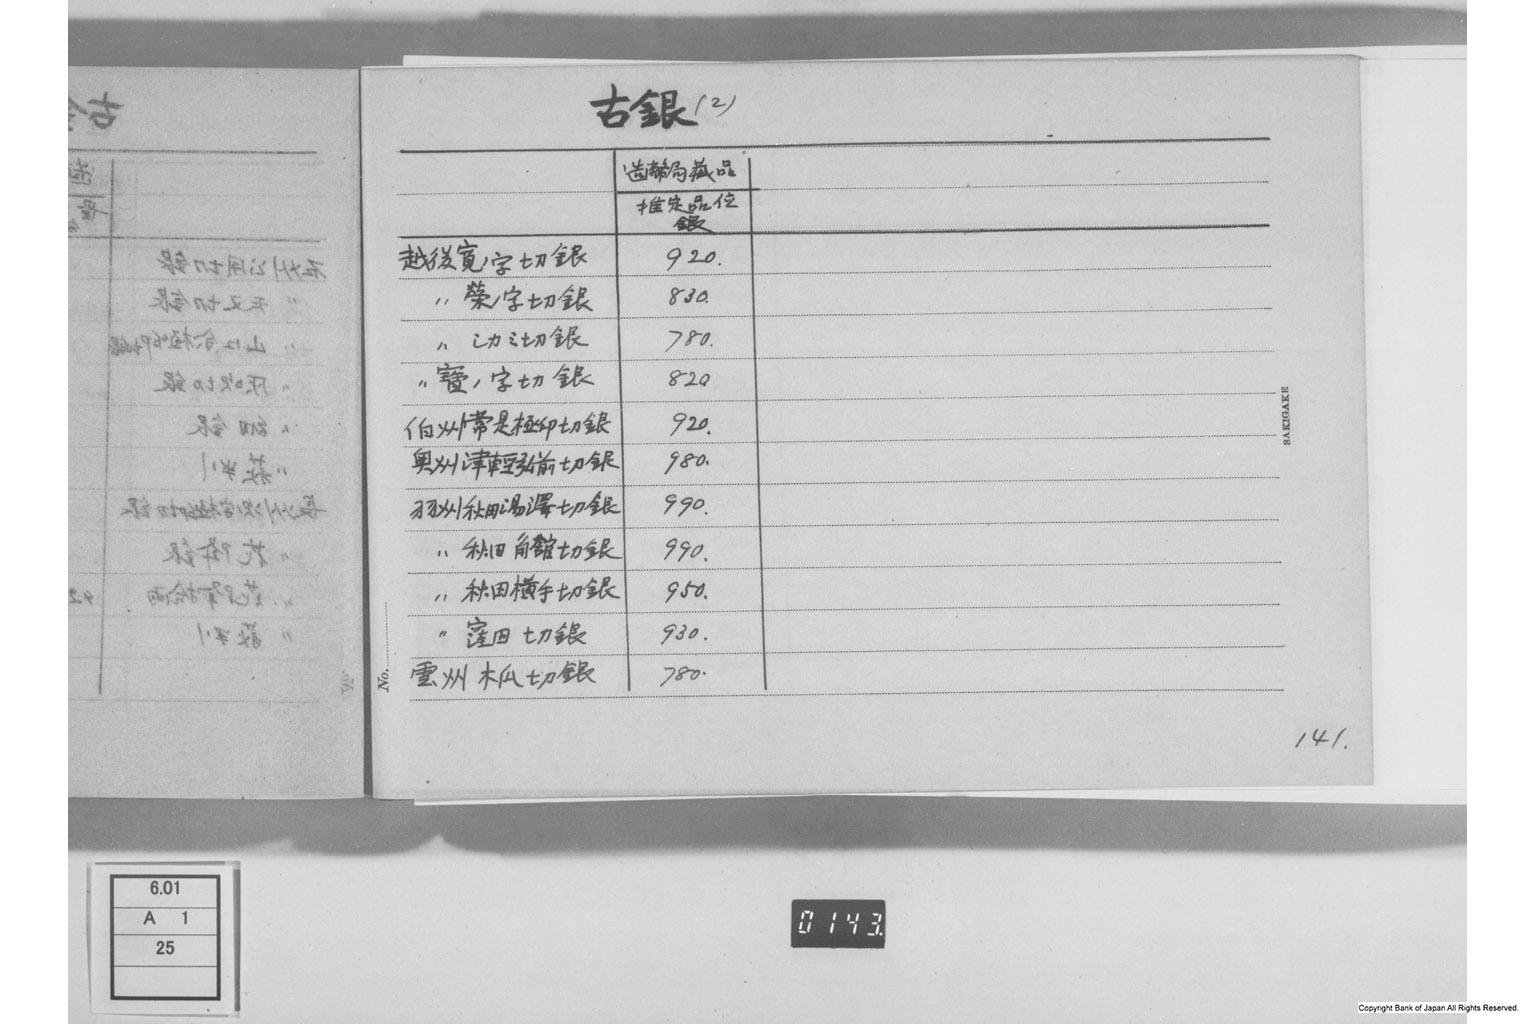 古銀(2)
造幣局蔵品
推定品位
銀
越後寛ノ字切銀 920.
〃 榮ノ字切銀 830.
〃 切銀 780.
〃 寶ノ字切銀 820
伯州常是極印切銀 920.
奥州津輕弘前切銀 980.
羽州秋田湯澤切銀 990.
〃 秋田角館切銀 990.
〃 秋田横手切銀 950.
〃 窪田切銀 930.
雲州木瓜切銀 780.
No.
SAKUGAKE
141.
6.01
A 1
25
0143
Copyright Bank of Japan All Rights Reserved.